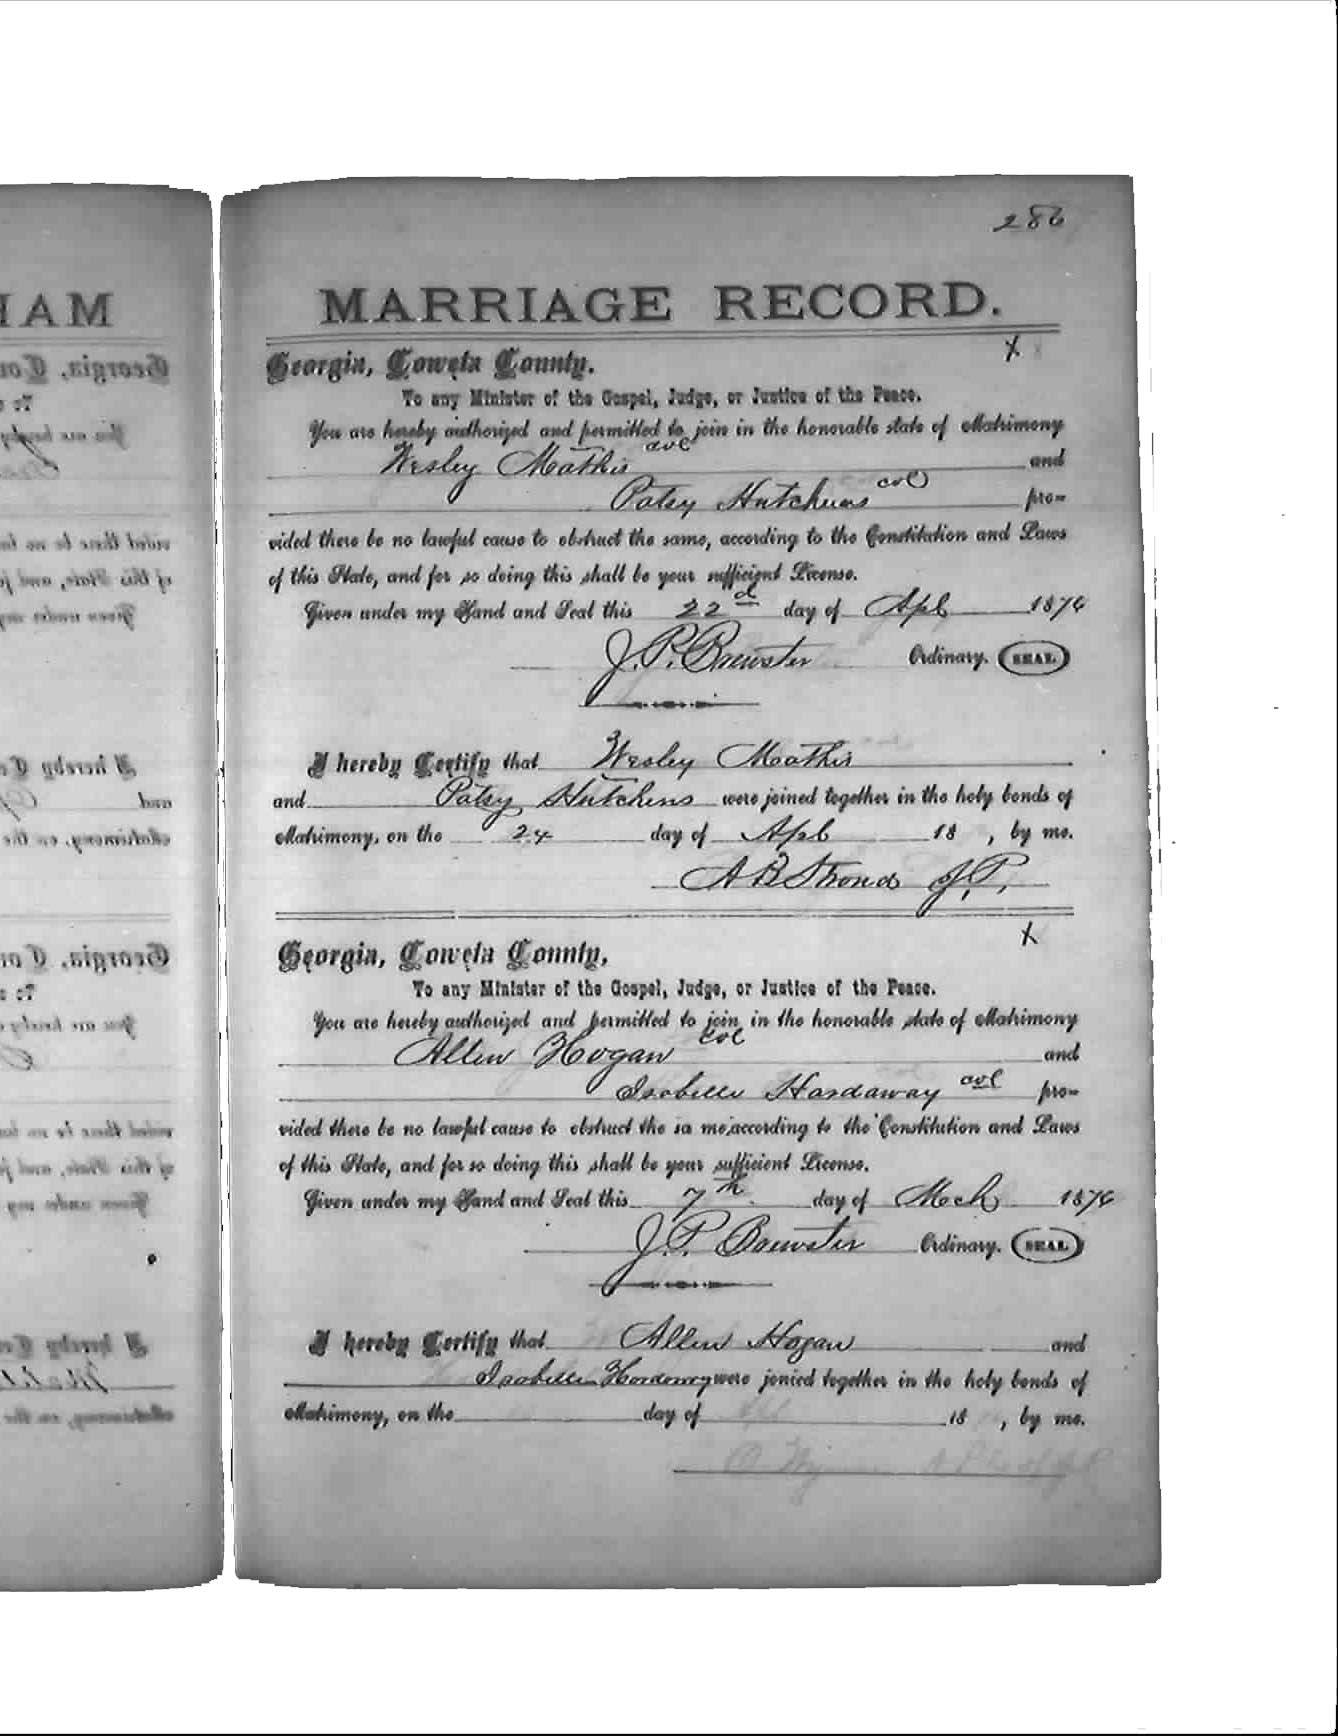 286
MARRIAGE RECORD.
X
Georgia, Coweta County.
To any Minister of the Gospel, Judge, or Justice of the Peace.
You are hereby authorized and permitted to join in the honorable state of Matrimony
Wesley Mathis col and
Patsy Hutchens col pro-
vided there be no lawful cause to obstruct the same, according to the Constitution and Laws
of this State, and for so doing this shall be your sufficient License.
Given under my Hand and Seal this 22d day of Apl 1876
J. P. Brewster Ordinary. SEAL
I hereby Certify that Wesley Mathis
and Patsy Hutchens were joined together in the holy bonds of
Matrimony, on the 24 day of Apl 18 , by me.
A B Stroud J. P.
X
Georgia, Coweta County,
To any Minister of the Gospel, Judge, or Justice of the Peace.
You are hereby authorized and permitted to join in the honorable state of Matrimony
Allen Hogan col and
Isabella Hardaway col pro-
vided there be no lawful cause to obstruct the sa me, according to the Constitution and Laws
of this State, and for so doing this shall be your sufficient License.
Given under my Hand and Seal this 7th day of Mch 1876
J. P. Brewster Ordinary. SEAL
I hereby Certify that Allen Hogan and
Isabella Hardaway were jonied together in the holy bonds of
Matrimony, on the day of 18 , by me.